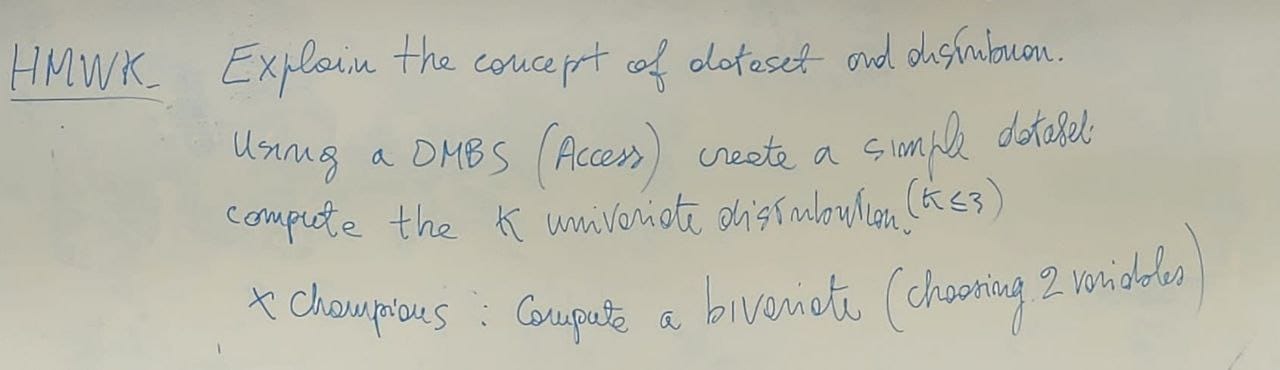 HMWK_ Explain the concept of dataset and distribution.
Using a DMBS (Access) create a simple dataset.
compute the K univariate distribution. (K ≤ 3)
x Champions : Compute a bivariate (choosing 2 variables)